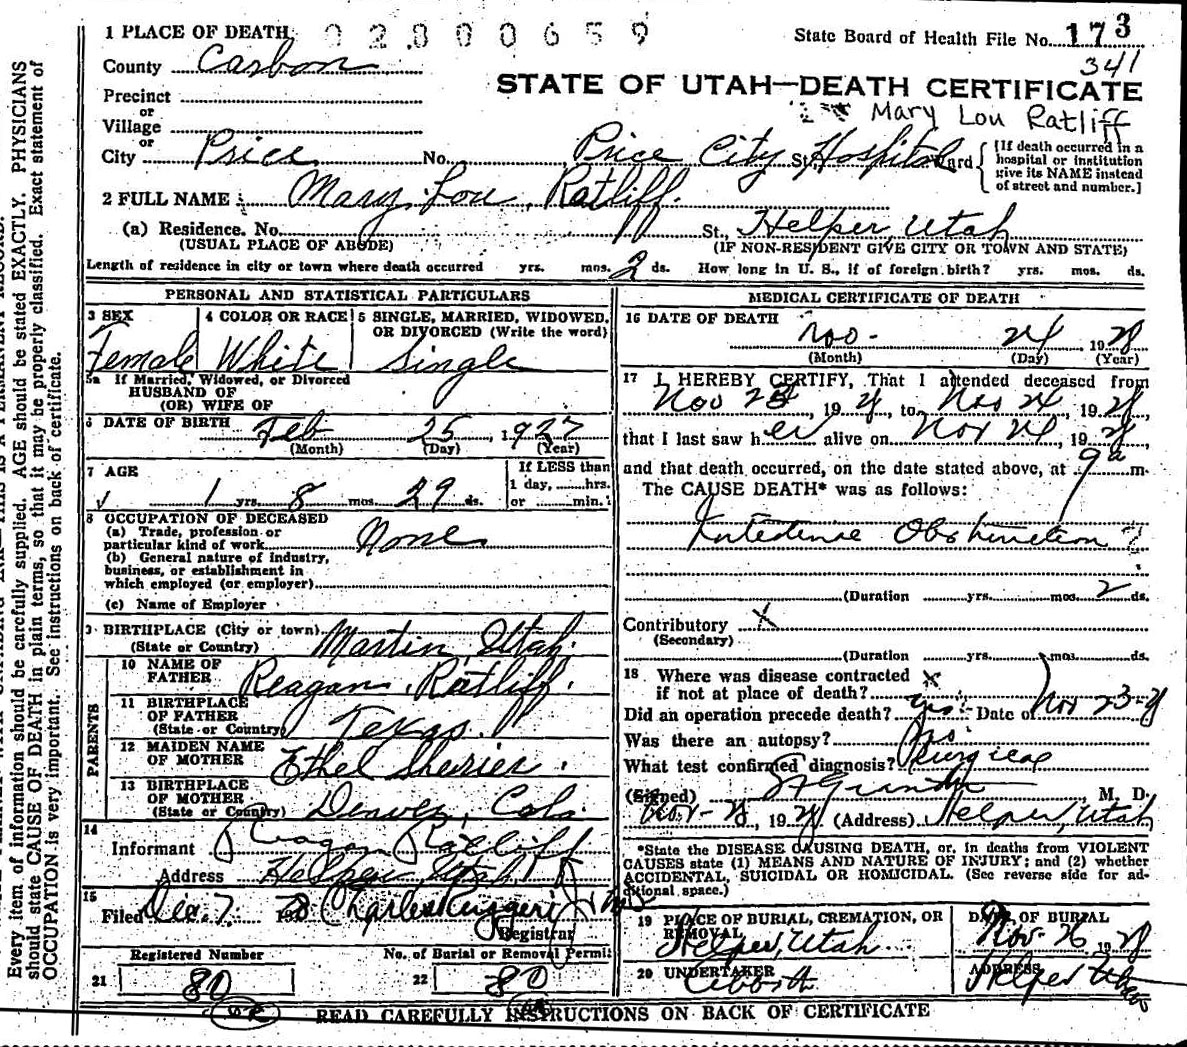 1 PLACE OF DEATH 02800659
State Board of Health File No. 173
341
County Carbon
STATE OF UTAH—DEATH CERTIFICATE
Precinct
or
Village
Mary Lou Ratliff
or
City Price No. Price City Hospital St. Ward
[If death occurred in a hospital or institution give its NAME instead of street and number.]
2 FULL NAME Mary Lou Ratliff.
(a) Residence. No. St., Helper, Utah
(USUAL PLACE OF ABODE) (IF NON-RESIDENT GIVE CITY OR TOWN AND STATE)
Length of residence in city or town where death occurred yrs. mos. 2 ds. How long in U. S., if of foreign birth? yrs. mos. ds.
PERSONAL AND STATISTICAL PARTICULARS
3 SEX 4 COLOR OR RACE 5 SINGLE, MARRIED, WIDOWED, OR DIVORCED (Write the word)
Female White Single
5a If Married, Widowed, or Divorced
HUSBAND OF
(OR) WIFE OF
6 DATE OF BIRTH Feb 25, 1927
(Month) (Day) (Year)
7 AGE If LESS than
1 day, hrs.
1 yrs. 8 mos. 29 ds. or min.
8 OCCUPATION OF DECEASED
(a) Trade, profession or
particular kind of work None
(b) General nature of industry,
business, or establishment in
which employed (or employer)
(c) Name of Employer
BIRTHPLACE (City or town) Martin, Utah.
(State or Country)
PARENTS
10 NAME OF
FATHER Reagan Ratliff.
11 BIRTHPLACE
OF FATHER
(State or Country) Texas.
12 MAIDEN NAME
OF MOTHER Ethel
13 BIRTHPLACE
OF MOTHER
(State or Country) Denver, Colo.
14
Informant Reagan Ratliff
Address Helper, Utah
15
Filed Dec. 7 Charles Ruggeri
Registrar
Registered Number No. of Burial or Removal Permit
21 80 22 80
MEDICAL CERTIFICATE OF DEATH
16 DATE OF DEATH
Nov. 24 1928
(Month) (Day) (Year)
17 I HEREBY CERTIFY, That I attended deceased from
Nov 23, 1928, to Nov 24, 1928,
that I last saw her alive on Nov 24, 1928
and that death occurred, on the date stated above, at 9 a m.
The CAUSE DEATH* was as follows:
Intestine Obstruction
(Duration yrs. mos. 2 ds.
Contributory x
(Secondary)
(Duration yrs. mos. ds.
18 Where was disease contracted
if not at place of death? x
Did an operation precede death? yes Date of Nov 23-28
Was there an autopsy? no
What test confirmed diagnosis? Surgical
(Signed) M. D.
, 1928 (Address) Helper, Utah
*State the DISEASE CAUSING DEATH, or, in deaths from VIOLENT
CAUSES state (1) MEANS AND NATURE OF INJURY; and (2) whether
ACCIDENTAL, SUICIDAL OR HOMICIDAL. (See reverse side for ad-
ditional space.)
19 PLACE OF BURIAL, CREMATION, OR REMOVAL DATE OF BURIAL
Helper, Utah Nov. 26 1928
20 UNDERTAKER ADDRESS
Helper Utah
READ CAREFULLY INSTRUCTIONS ON BACK OF CERTIFICATE
Every item of information should be carefully supplied. AGE should be stated EXACTLY. PHYSICIANS
should state CAUSE OF DEATH in plain terms, so that it may be properly classified. Exact statement of
OCCUPATION is very important. See instructions on back of certificate.